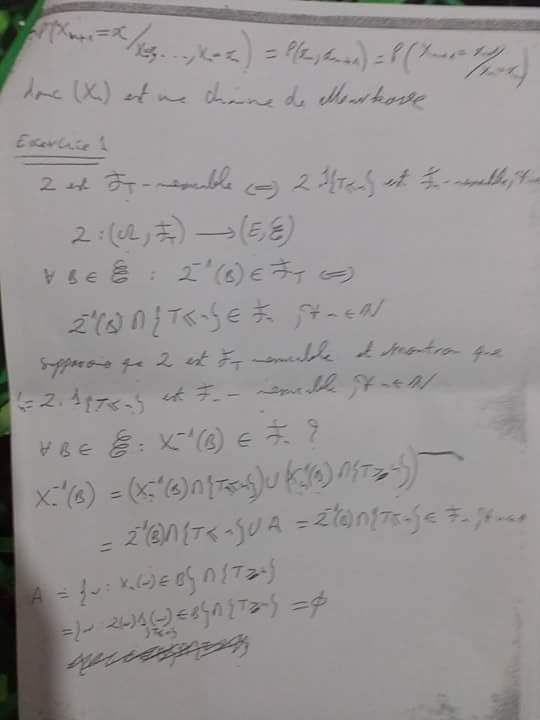 P(Xₙ₊₁=x / X₀=x₀, ..., Xₙ=xₙ) = P(xₙ, xₙ₊₁) = P(Xₙ₊₁=xₙ₊₁ / Xₙ=xₙ)
donc (Xₙ) est une chaine de Markov
Exercice 1
Z est 𝓕_T - mesurable ⟺ Z 1{T⩽n} est 𝓕ₙ - mesurable, ∀n
Z : (Ω, 𝓕_T) ⟶ (E, 𝓔)
∀ B ∈ 𝓔 : Z⁻¹(B) ∈ 𝓕_T ⟺
Z⁻¹(B) ∩ {T⩽n} ∈ 𝓕ₙ ; ∀ n ∈ ℕ
supposons que Z est 𝓕_T mesurable et montrons que
Xₙ = Z.1{T⩽n} est 𝓕ₙ - mesurable ; ∀ n ∈ ℕ
∀ B ∈ 𝓔 : Xₙ⁻¹(B) ∈ 𝓕ₙ ?
Xₙ⁻¹(B) = (Xₙ⁻¹(B) ∩ {T⩽n}) ∪ (Xₙ⁻¹(B) ∩ {T⩾n})
= Z⁻¹(B) ∩ {T⩽n} ∪ A = Z⁻¹(B) ∩ {T⩽n} ∈ 𝓕ₙ ; ∀ n ∈ ℕ
A = {ω : Xₙ(ω) ∈ B} ∩ {T⩾n}
= {ω : Z(ω) 1{T⩽n}(ω) ∈ B} ∩ {T⩾n} = ϕ